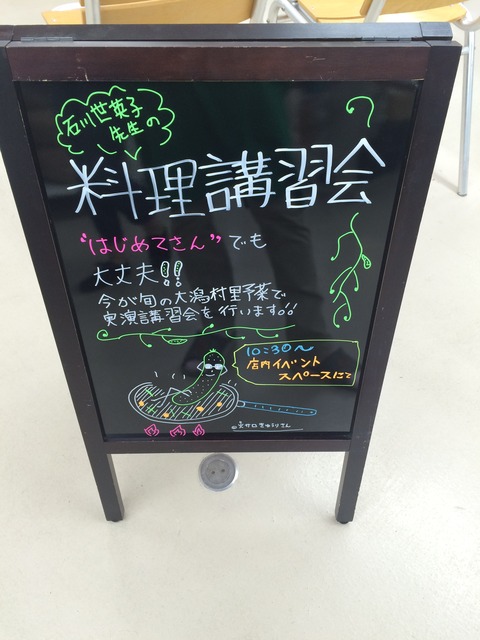 石川世英子
先生の
料理講習会
"はじめてさん"でも
大丈夫!!
今が旬の大潟村里野菜で
実演講習会を行います。!!
10:30〜
店内イベント
スペースにて